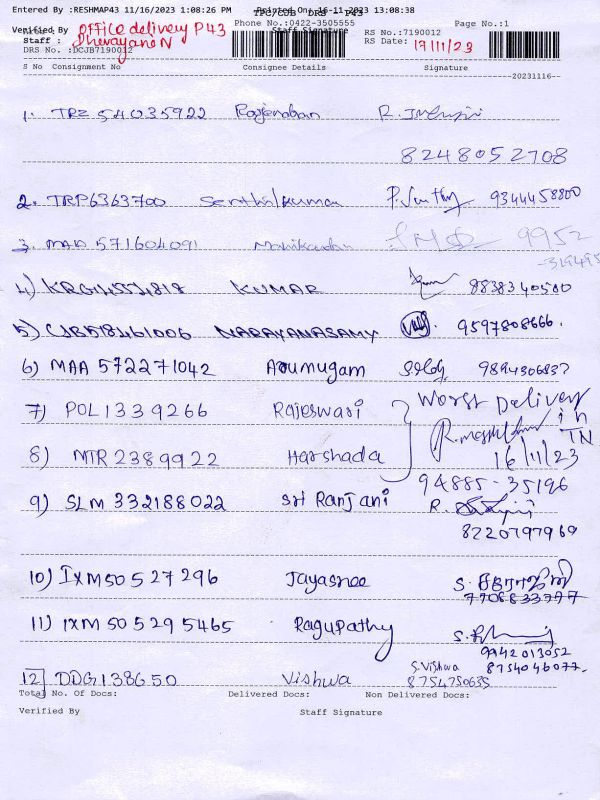 Entered By :RESHMAP43 11/16/2023 1:08:26 PM Printed On: 16-11-2023 13:08:38
TPC/CJB DRS - P43
Phone No.:0422-3505555 Page No.:1
Verified By Office delivery P43 Staff Signature RS No.:7190012
Staff : RS Date: 17/11/23
DRS No. :DCJB7190012
S No Consignment No Consignee Details Signature
20231116--
1. TRZ 54035922
8248052708
2. TRP6363700 Senthilkumar 9344458800
3. MAA 571604091 Manikandan 9952
4) KUMAR 9838340580
5) CJB518461006 NARAYANASAMY 9597808666.
6) MAA 572271042 Arumugam 9894306837
7) POL 1339266 Rajeswari Worst Delivery
in TN
8) MTR 2389922 Harshada 16/11/23
94885-35196
9) SLM 332188022 Sri Ranjani
8220797969
10) IXM50 527296 Jayasree
7708833797
11) IXM 505295465 Ragupathy
9942013052
8754046077.
12) DDG138650 Vishwa S. Vishwa
8754750635
Total No. Of Docs: Delivered Docs: Non Delivered Docs:
Verified By Staff Signature